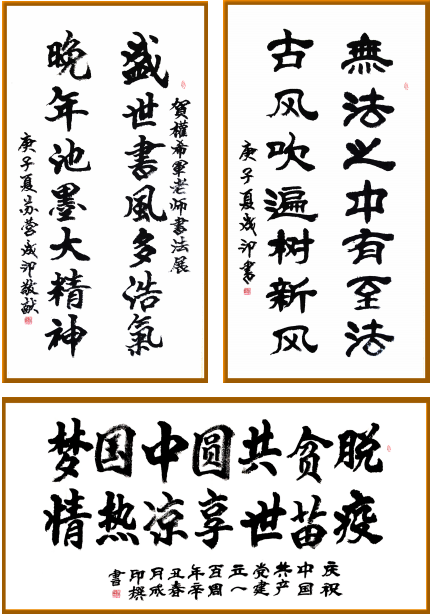 賀權希軍老师書法展
盛世書風多浩氣
晚年池墨大精神
庚子夏苏营成印敬献
無法之中有至法
古风吹遍树新风
庚子夏成印書
脱贫共圆中国梦
疫苗世享凉热情
庆祝
中国
共产
党建
立一
百周
年辛
丑春
月成
印撰
書